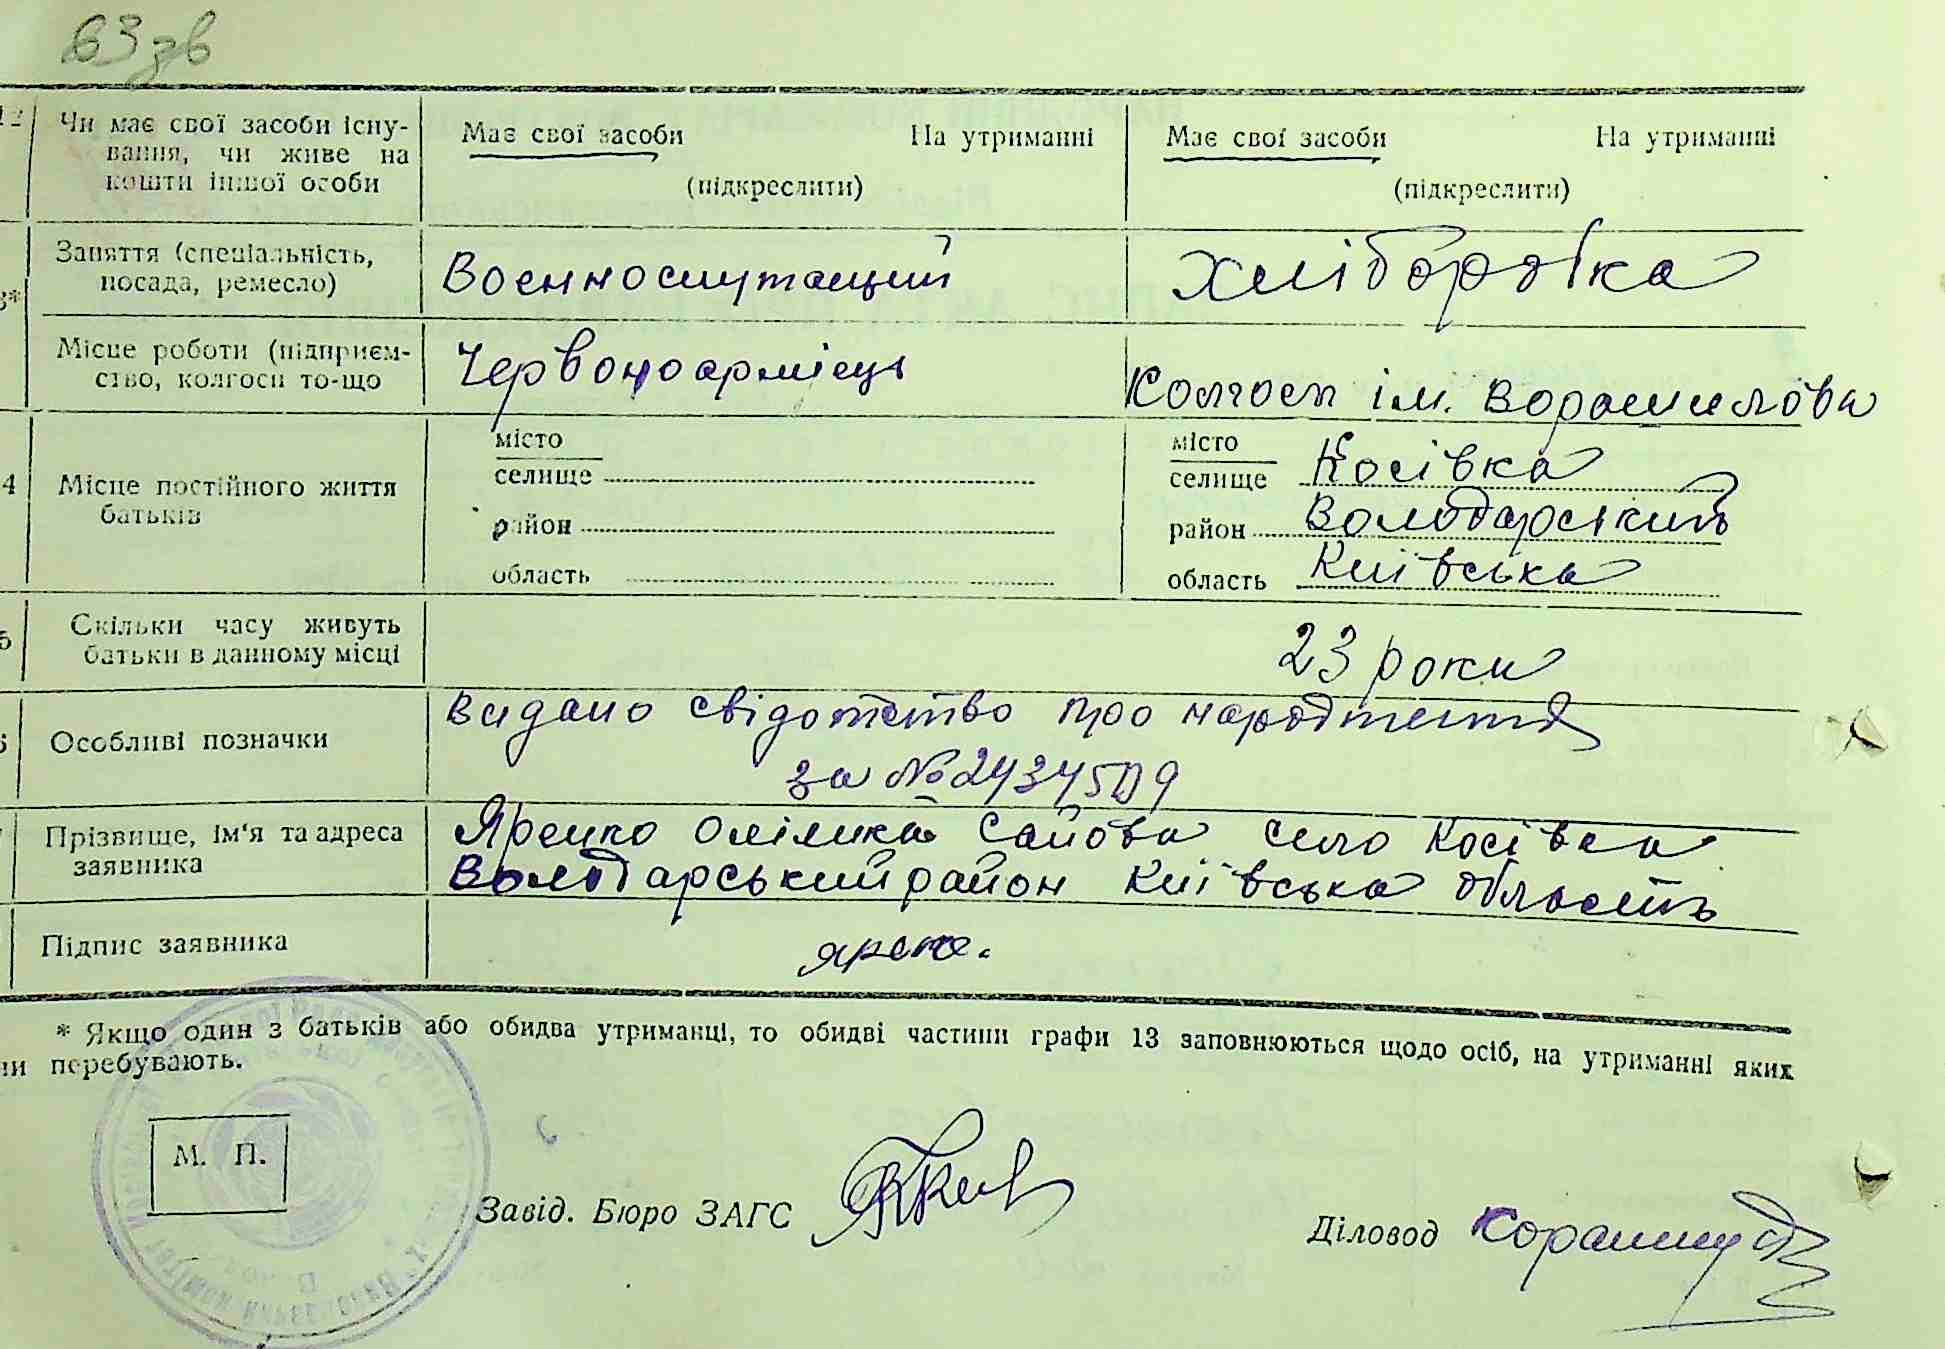 63 зв
12 Чи має свої засоби існу-
вання, чи живе на
кошти іншої особи
Має свої засоби На утриманні
(підкреслити)
Має свої засоби На утриманні
(підкреслити)
3* Заняття (спеціальність,
посада, ремесло)
Воєннослужащий
Хліборобка
Місце роботи (підприєм-
ство, колгосп то-що
Червоноармієць
Колгосп ім. Ворошилова
4 Місце постійного життя
батьків
місто
селище
район
область
місто
селище Косівка
район Володарський
область Київська
5 Скільки часу живуть
батьки в данному місці
23 роки
6 Особливі позначки
Видано свідотство про народження
за №
Прізвище, ім'я та адреса
заявника
Яренко село Косівка
Володарський район Київська область
Підпис заявника
* Якщо один з батьків або обидва утриманці, то обидві частини графи 13 заповнюються щодо осіб, на утриманні яких
ни перебувають.
М. П.
Завід. Бюро ЗАГС
Діловод